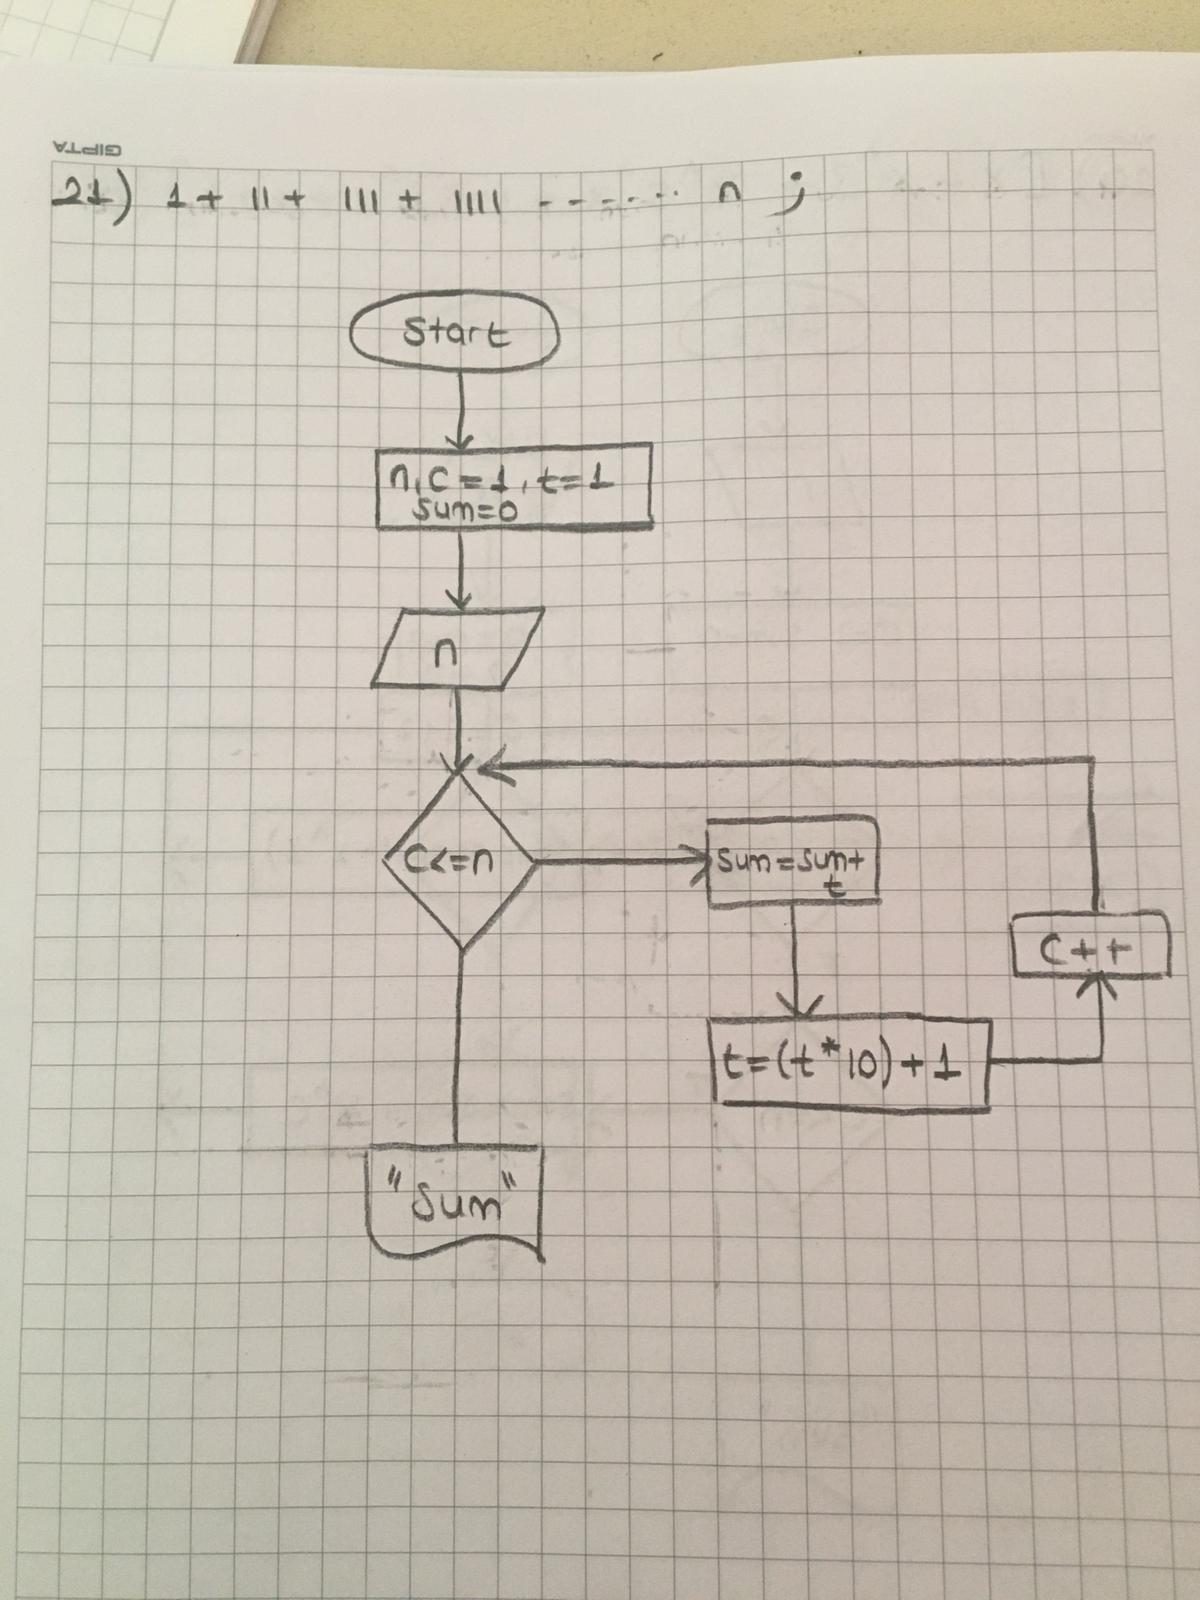 GIPTA
21) 1 + 11 + 111 + 1111 ------... n ;
Start
n, c = 1, t = 1
sum=0
n
C<=n
sum=sum+
t
C++
t=(t*10)+1
"Sum"